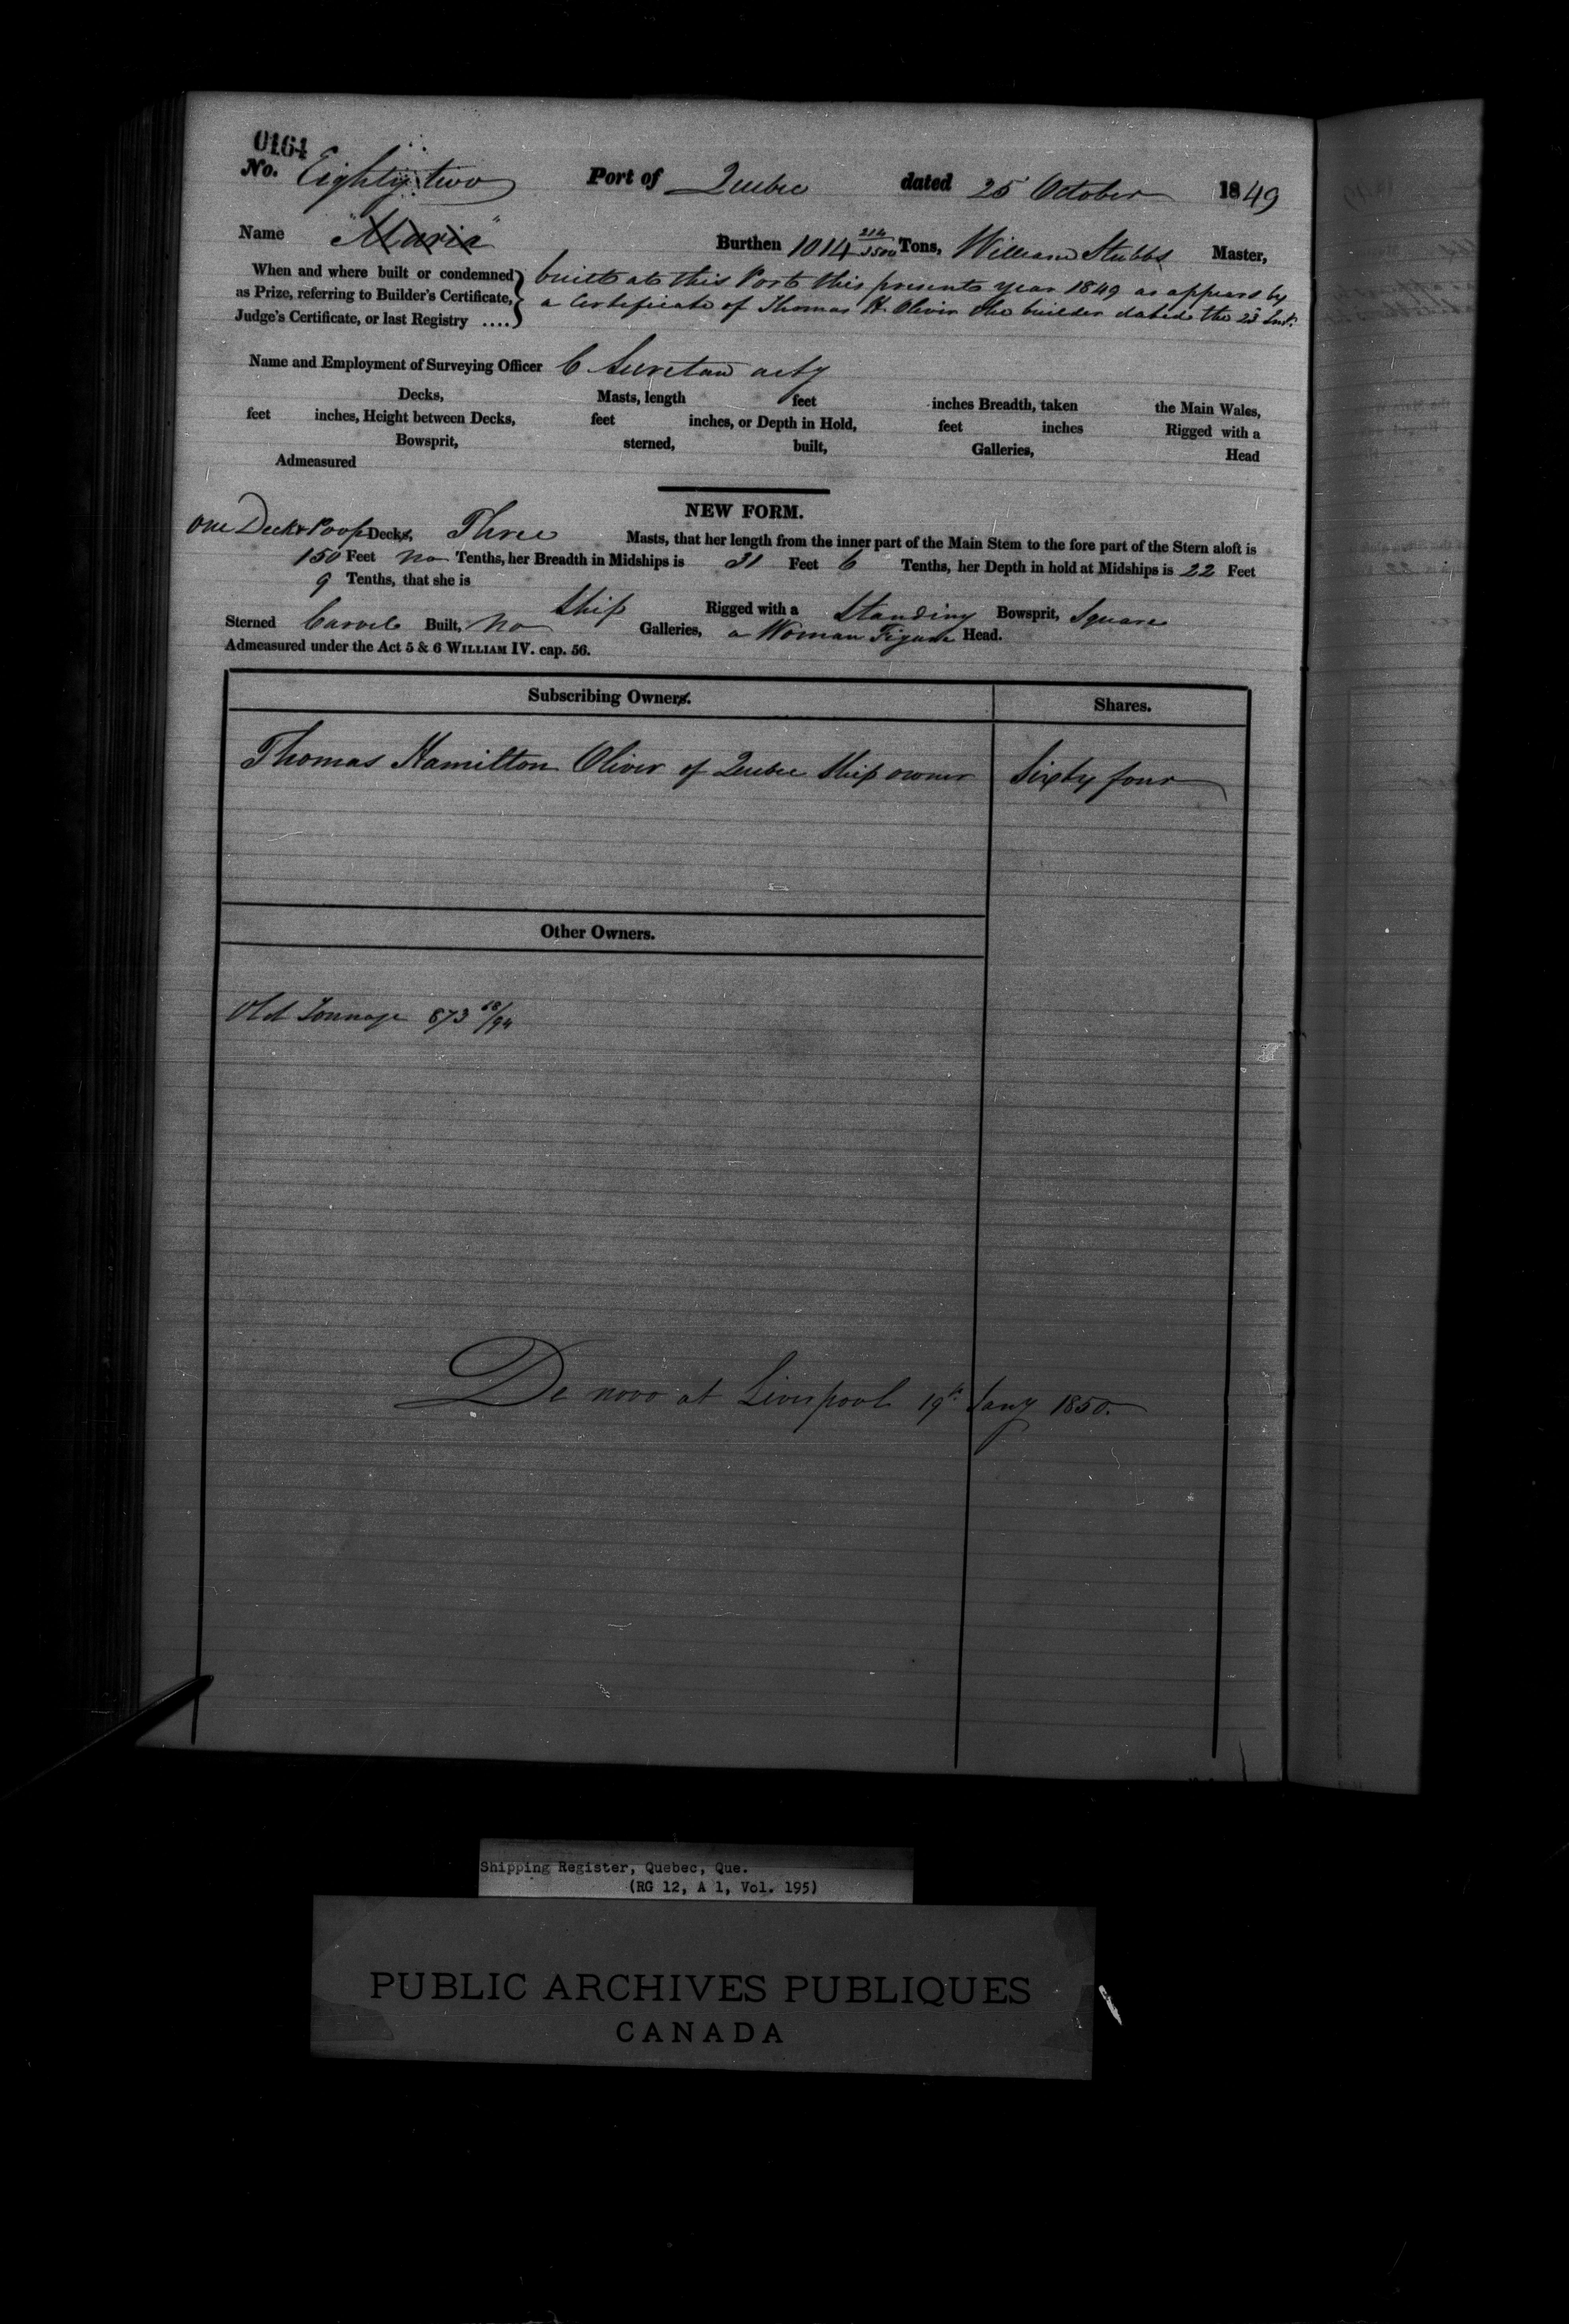 0164
No. Eighty two Port of Quebec dated 25 October 1849
Name "Maria" Burthen 1014 214/3500 Tons, William Stubbs Master,
When and where built or condemned as Prize, referring to Builder's Certificate, Judge's Certificate, or last Registry .... } built at this Port this present year 1849 as appears by
a Certificate of Thomas H. Oliver the builder dated the 23 Inst.
Name and Employment of Surveying Officer C Secretan actg
Decks, Masts, length feet inches Breadth, taken the Main Wales,
feet inches, Height between Decks, feet inches, or Depth in Hold, feet inches Rigged with a
Bowsprit, sterned, built, Galleries, Head
Admeasured
NEW FORM.
One Deck & Poop Decks, Three Masts, that her length from the inner part of the Main Stem to the fore part of the Stern aloft is
150 Feet no Tenths, her Breadth in Midships is 31 Feet 6 Tenths, her Depth in hold at Midships is 22 Feet
9 Tenths, that she is Ship Rigged with a Standing Bowsprit, Square
Sterned Carvel Built, No Galleries, a Woman Figure Head.
Admeasured under the Act 5 & 6 WILLIAM IV. cap. 56.
Subscribing Owners. Shares.
Thomas Hamilton Oliver of Quebec Ship owner Sixty four
Other Owners.
Old Tonnage 873 58/94
De novo at Liverpool 19th Jany 1850.
Shipping Register, Quebec, Que.
(RG 12, A 1, Vol. 195)
PUBLIC ARCHIVES PUBLIQUES
CANADA